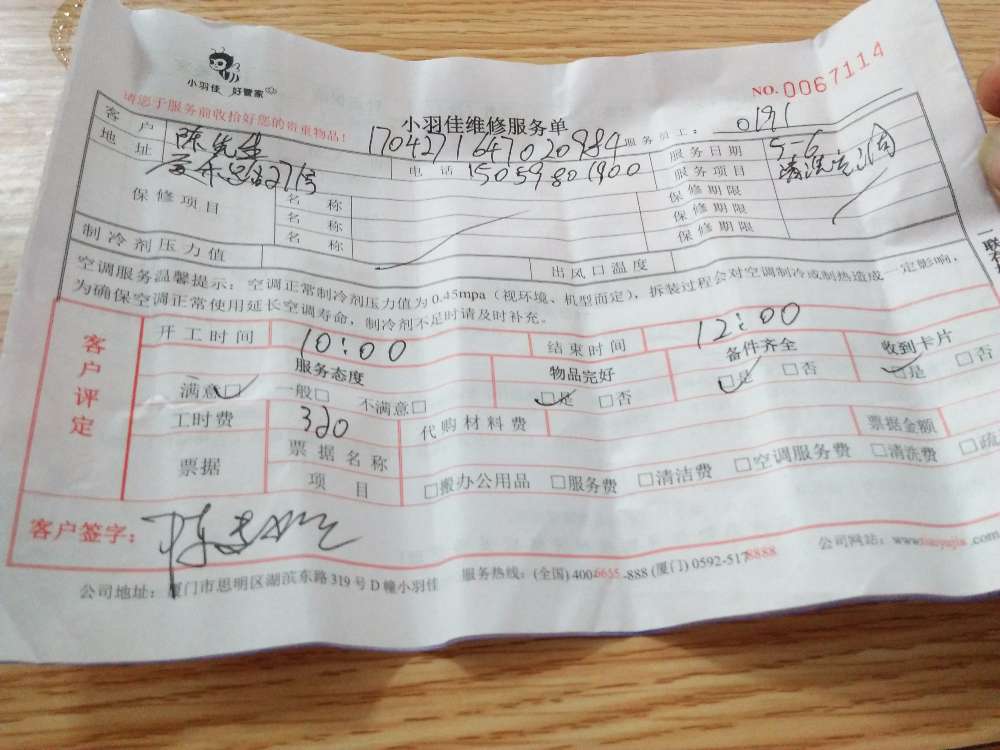 小羽佳 好管家
NO. 0067114
请您于服务前收拾好您的贵重物品!
小羽佳维修服务单
客户 陈先生 1704271647020984 服务员工: 0191
地址 27号 电话 15059801900 服务日期 5-6
服务项目 清洗
保修项目 名称 保修期限
名称 保修期限
名称 保修期限
制冷剂压力值 出风口温度
空调服务温馨提示: 空调正常制冷剂压力值为0.45mpa (视环境、机型而定), 拆装过程会对空调制冷或制热造成一定影响,
为确保空调正常使用延长空调寿命, 制冷剂不足时请及时补充。
客户评定
开工时间 10:00 结束时间 12:00
服务态度 物品完好 备件齐全 收到卡片
满意□ 一般□ 不满意□ □是 □否 □是 □否 □是 □否
工时费 320 代购材料费 票据金额
票据 票据名称
项目 □搬办公用品 □服务费 □清洁费 □空调服务费 □清洗费 □疏
客户签字: 陈
公司地址: 厦门市思明区湖滨东路319号D幢小羽佳 服务热线: (全国) 400-6655-888 (厦门) 0592-5178888 公司网站: www.xiaoyujia.com